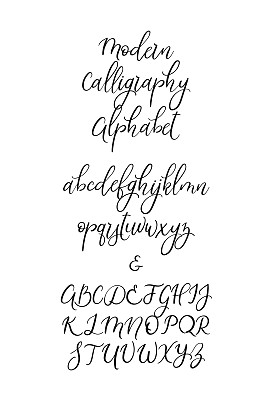 Modern
Calligraphy
Alphabet
abcdefghijklmn
opqrstuvwxyz
&
ABCDEFGHIJ
KLMNOPQR
STUVWXYZ